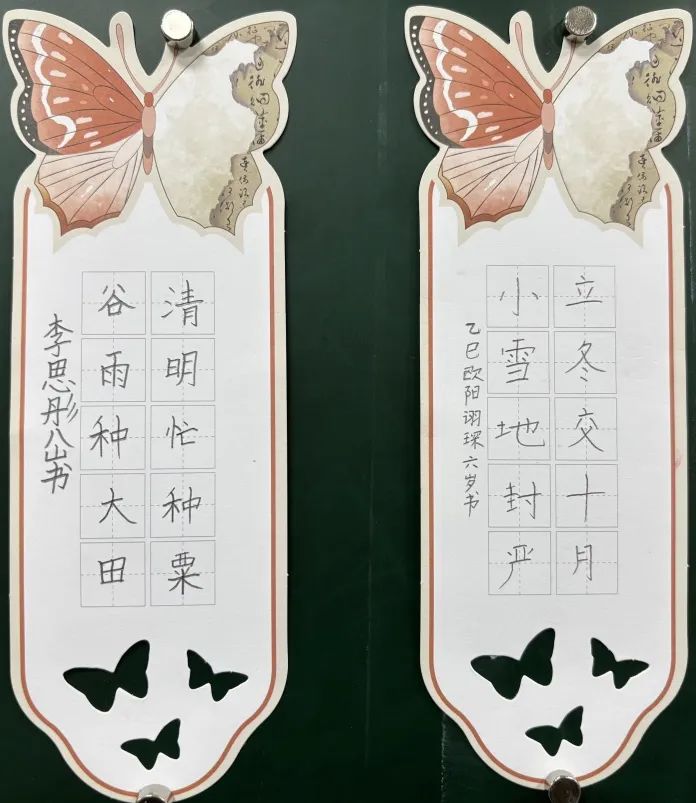 清明忙种粟
谷雨种大田
李思彤八岁书
立冬交十月
小雪地封严
乙巳欧阳诩琛六岁书